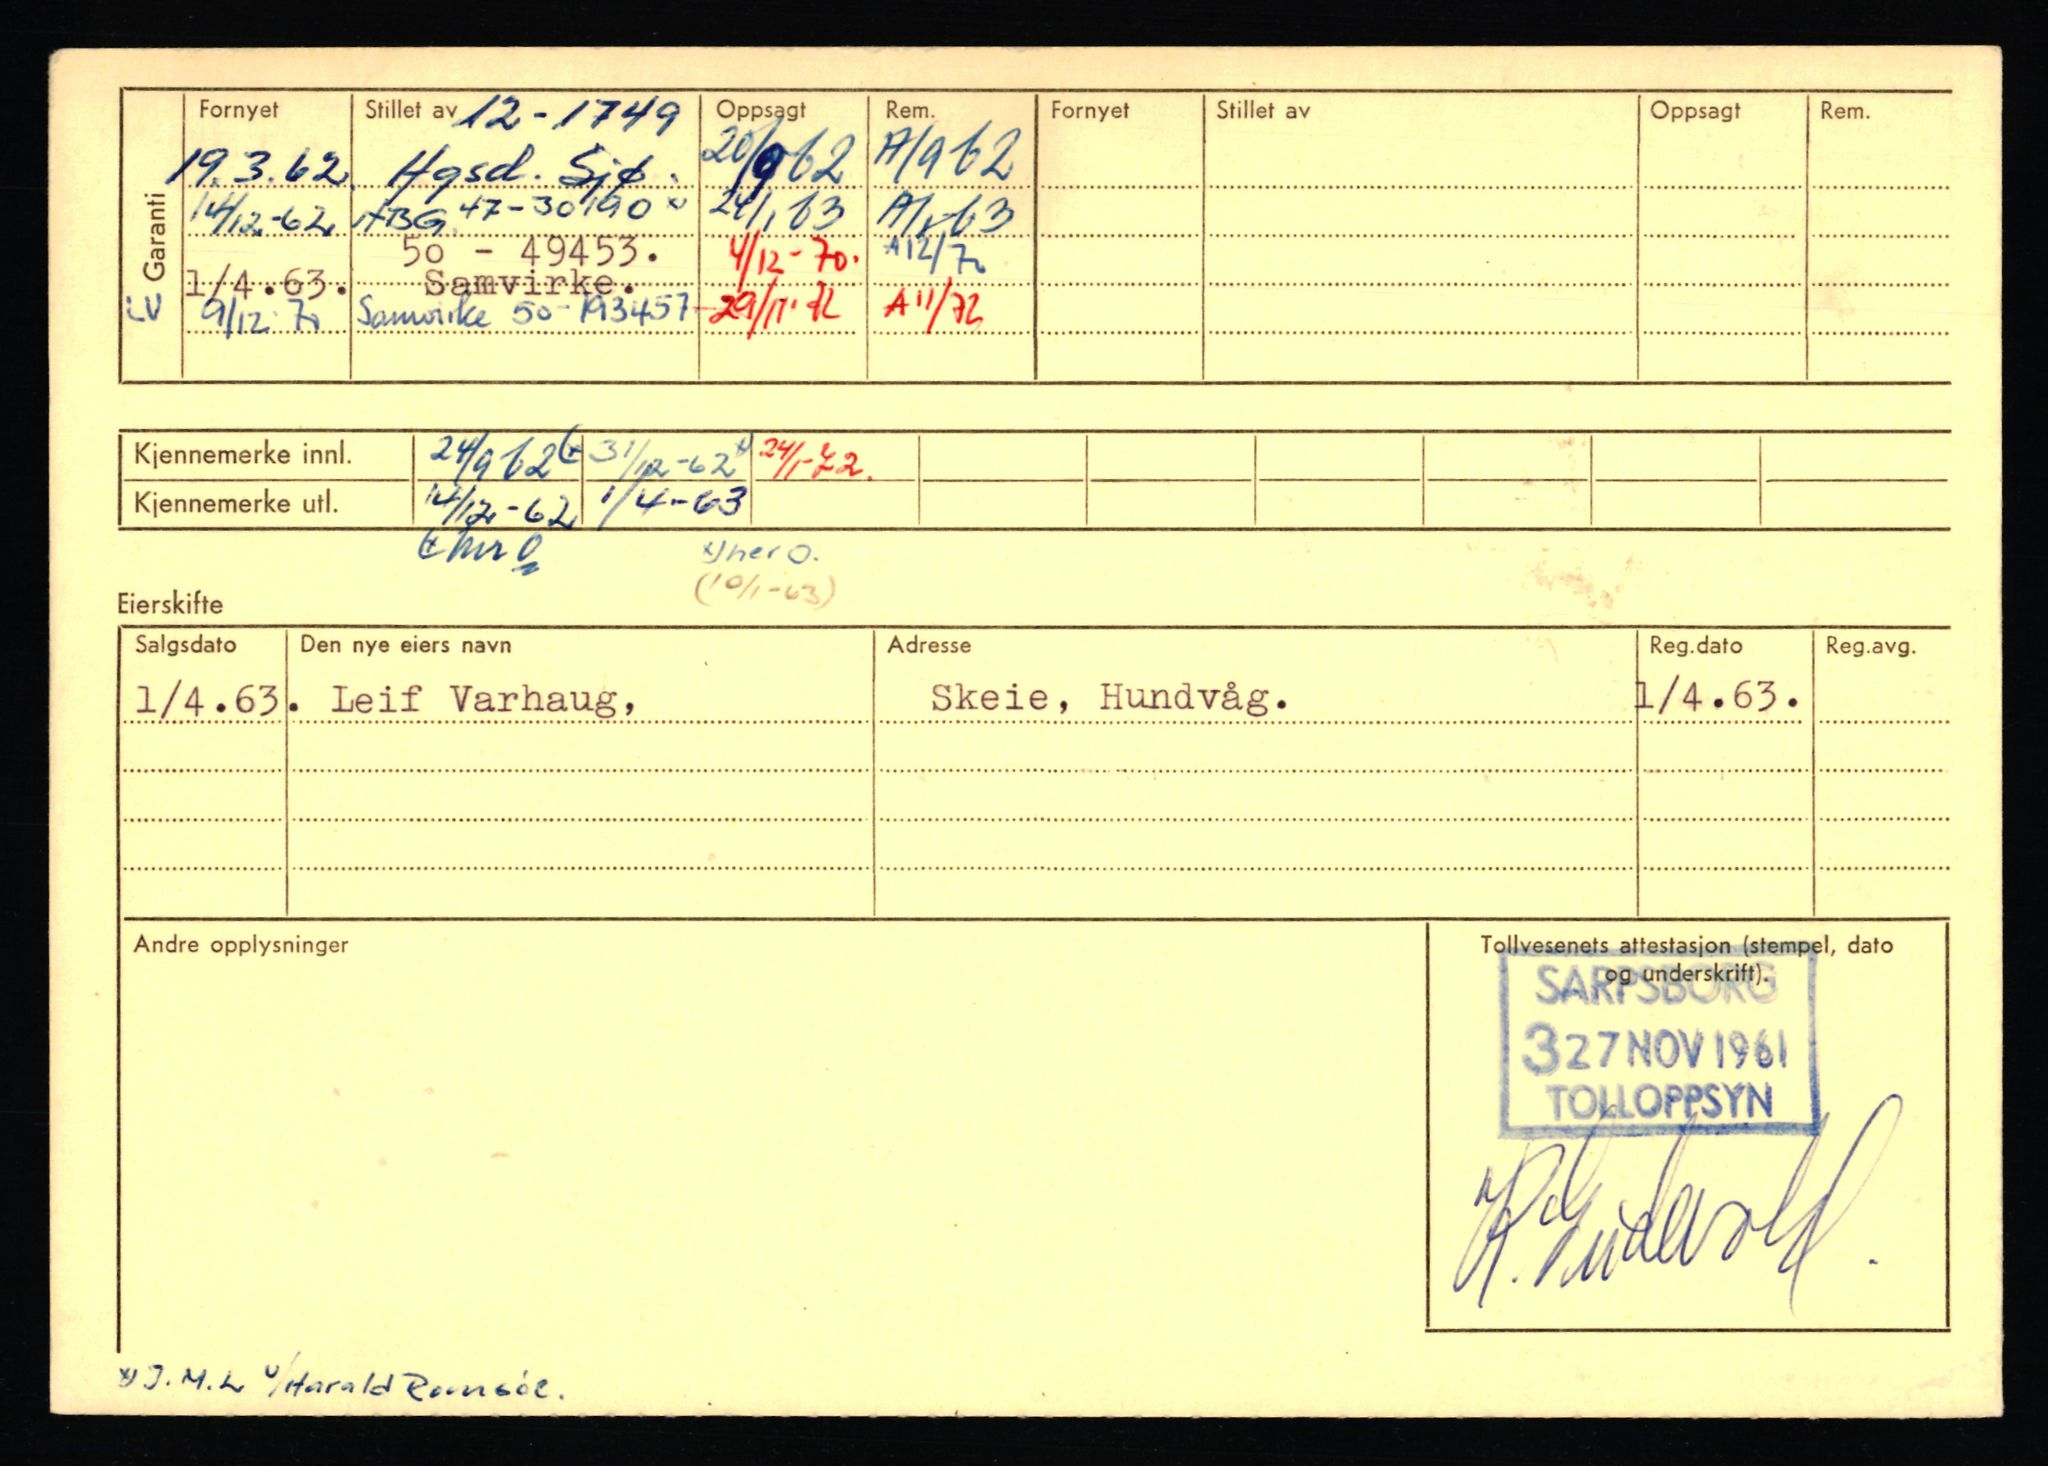 Garanti
Fornyet Stillet av 12-1749 Oppsagt Rem. Fornyet Stillet av Oppsagt Rem.
19.3.62 Hgsd. Sjø. 20/9 62 A/9 62
14/12-62 ABG 47-30190 x 24/1 63 A/1-63
50 - 49453. 4/12-70. A12/70
1/4.63. Samvirke.
LV 9/12 70 Samvirke 50-193457 29/11-72 A11/72
Kjennemerke innl. 24/9 62 31/12-62 x) 24/1-72.
Kjennemerke utl. 14/12-62 1/4-63
her O x) her O.
(10/1-63)
Eierskifte
Salgsdato Den nye eiers navn Adresse Reg.dato Reg.avg.
1/4.63. Leif Varhaug, Skeie, Hundvåg. 1/4.63.
Andre opplysninger Tollvesenets attestasjon (stempel, dato
og underskrift).
SARPSBORG
3 27 NOV 1961
TOLLOPPSYN
x) J.M.L v/Harald